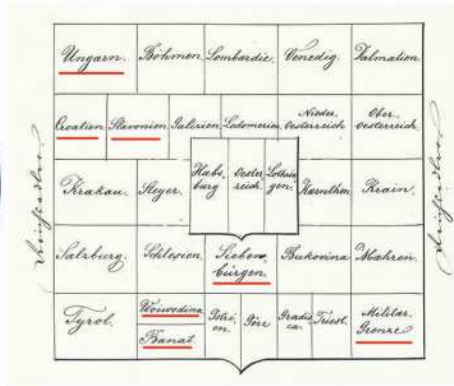 Ungarn. Böhmen. Lombardie. Venedig. Dalmation.
Croatien. Slavonien. Galizien. Lodomerien. Nieder. Oesterreich. Ober. oesterreich.
Krakau. Steyer. Habs, burg Oester reich. Lothrin gen. Kärnthen. Krain.
Salzburg. Schlesien. Sieben, bürgen. Bukovina Mæhren.
Tyrol. Woiwodina Banat. Istri, en. Görz Gradis ca. Triest. Militär. Grenze